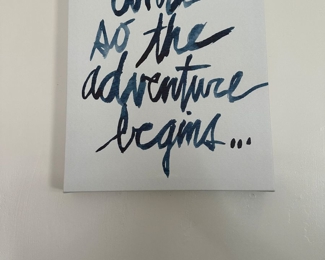 so the
adventure
begins...